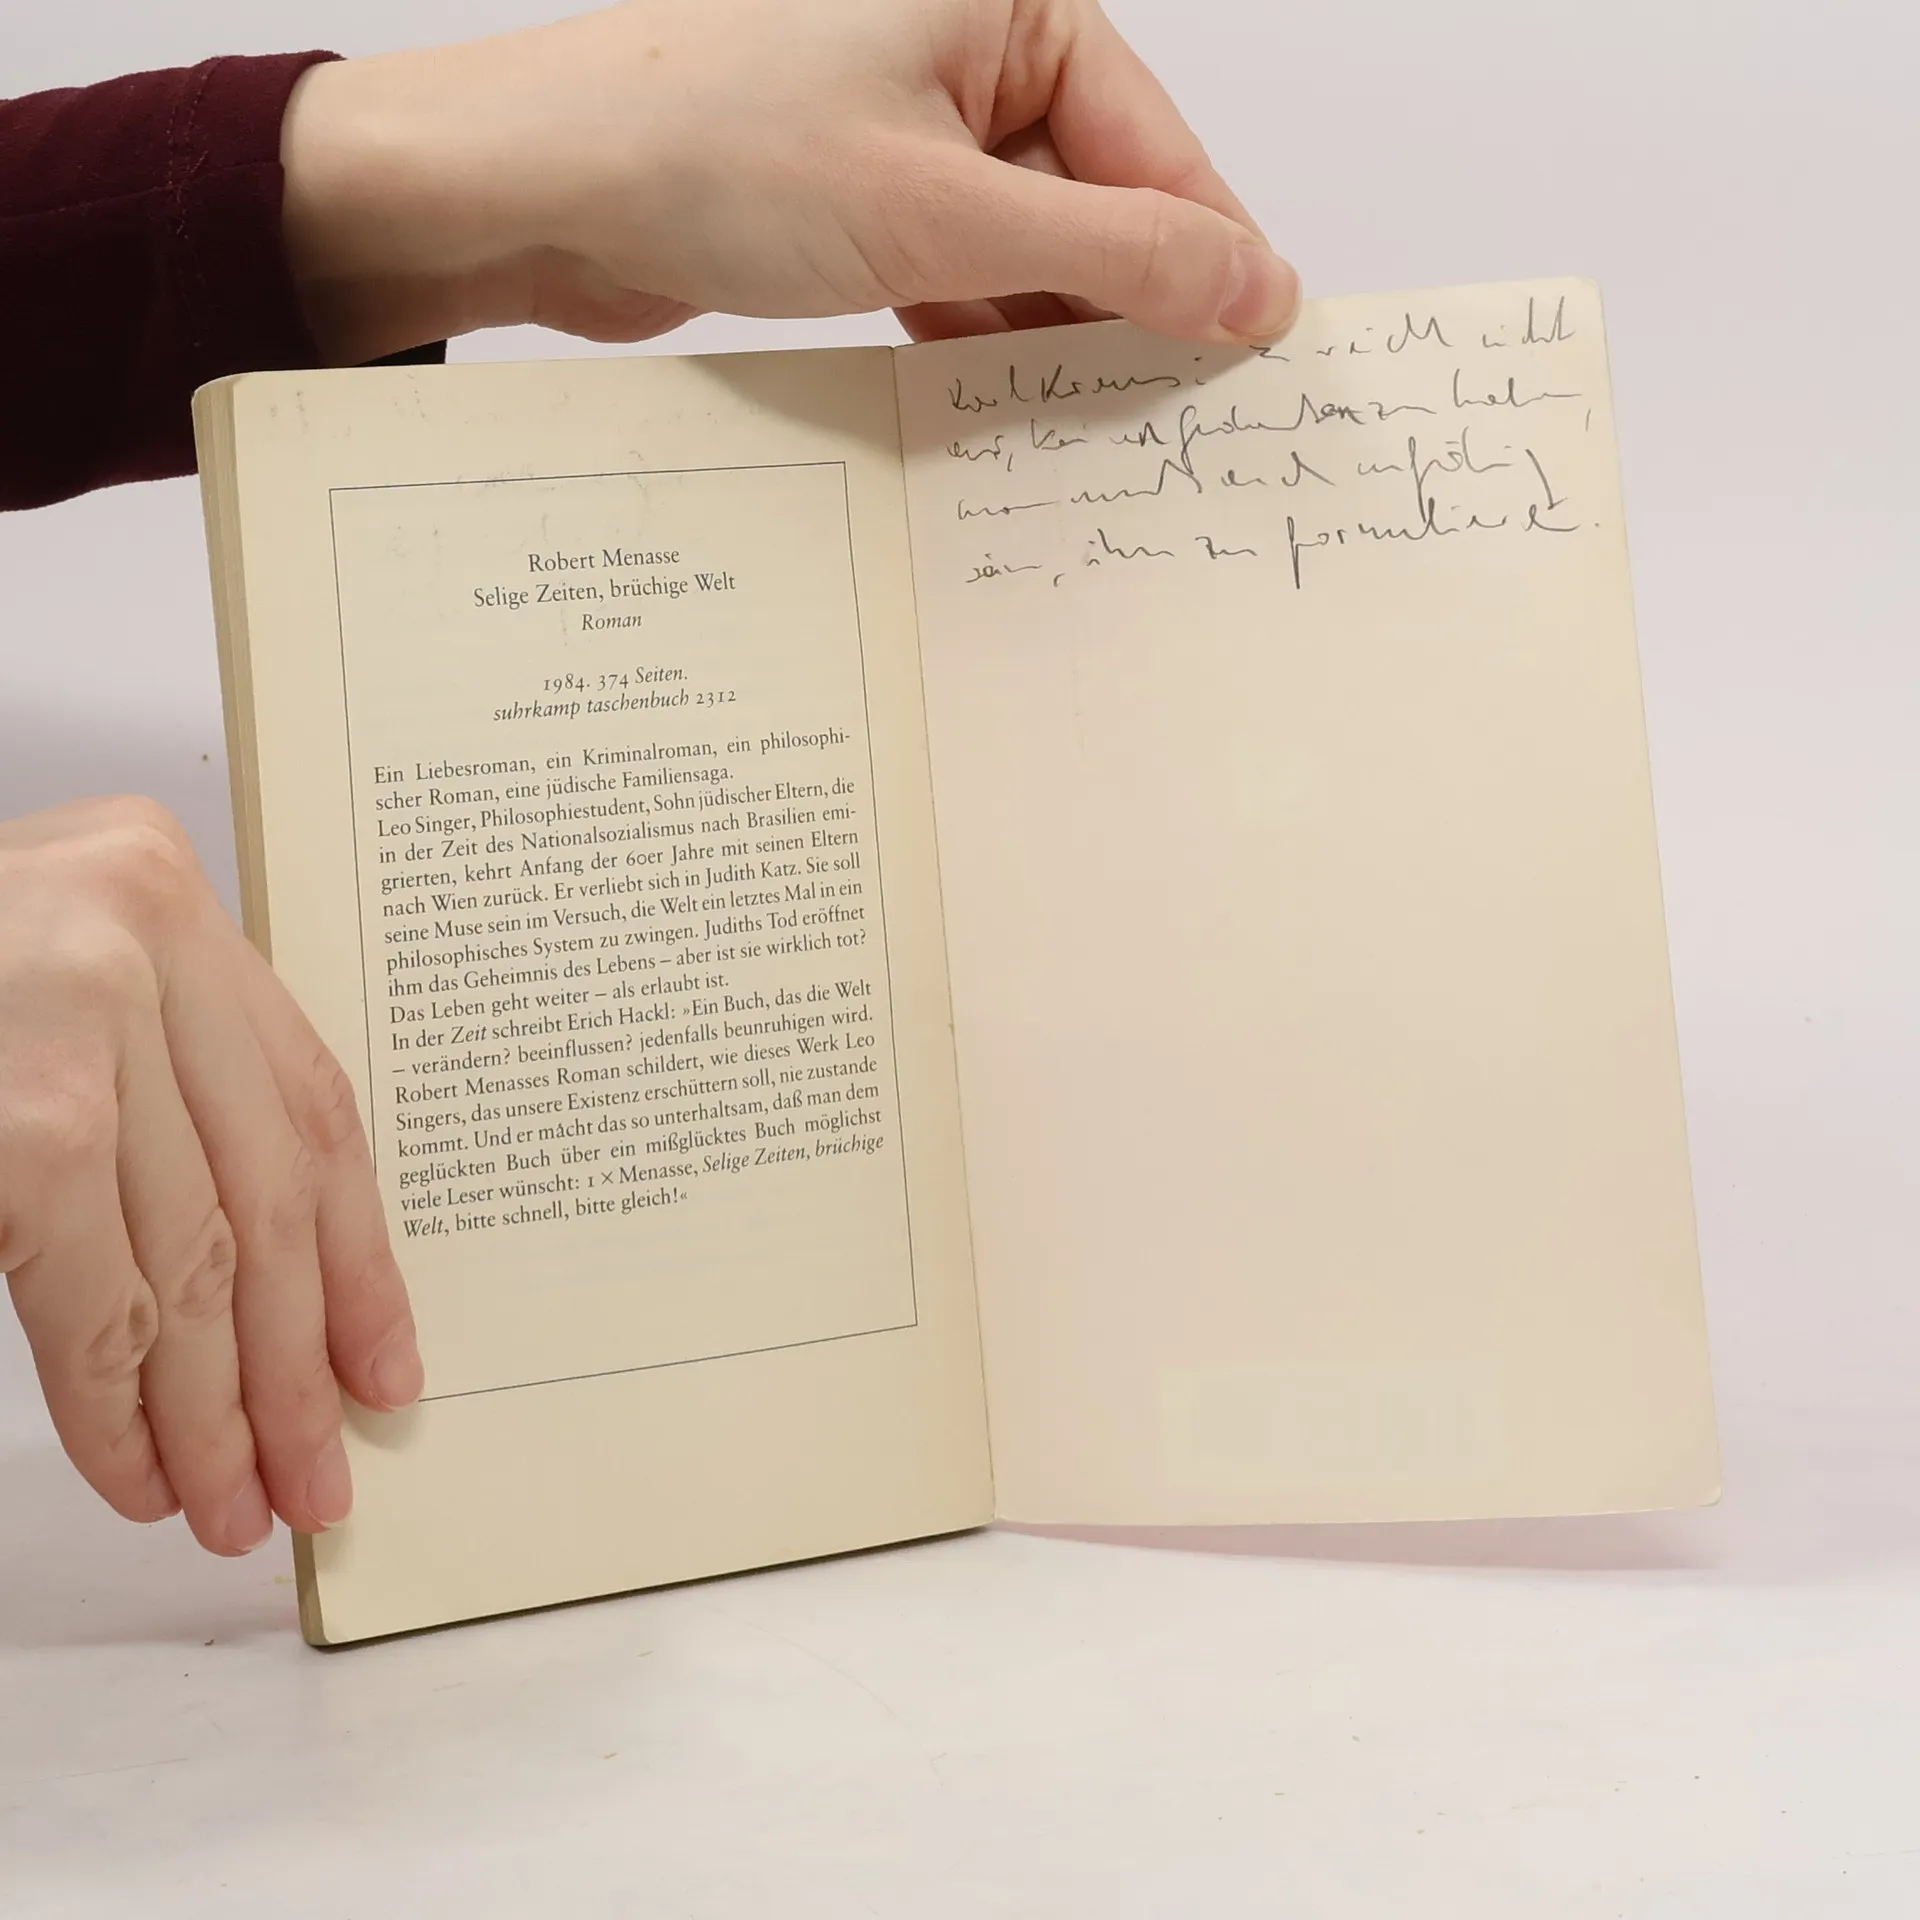 Robert Menasse
Selige Zeiten, brüchige Welt
Roman
1984. 374 Seiten.
suhrkamp taschenbuch 2312
Ein Liebesroman, ein Kriminalroman, ein philosophi-
scher Roman, eine jüdische Familiensaga.
Leo Singer, Philosophiestudent, Sohn jüdischer Eltern, die
in der Zeit des Nationalsozialismus nach Brasilien emi-
grierten, kehrt Anfang der 60er Jahre mit seinen Eltern
nach Wien zurück. Er verliebt sich in Judith Katz. Sie soll
seine Muse sein im Versuch, die Welt ein letztes Mal in ein
philosophisches System zu zwingen. Judiths Tod eröffnet
ihm das Geheimnis des Lebens – aber ist sie wirklich tot?
Das Leben geht weiter – als erlaubt ist.
In der Zeit schreibt Erich Hackl: »Ein Buch, das die Welt
– verändern? beeinflussen? jedenfalls beunruhigen wird.
Robert Menasses Roman schildert, wie dieses Werk Leo
Singers, das unsere Existenz erschüttern soll, nie zustande
kommt. Und er macht das so unterhaltsam, daß man dem
geglückten Buch über ein mißglücktes Buch möglichst
viele Leser wünscht: 1 × Menasse, Selige Zeiten, brüchige
Welt, bitte schnell, bitte gleich!«
Karl Kraus: reicht nicht
aus, kein zu haben,
man muß auch unfähig
sein, ihn zu formulieren.